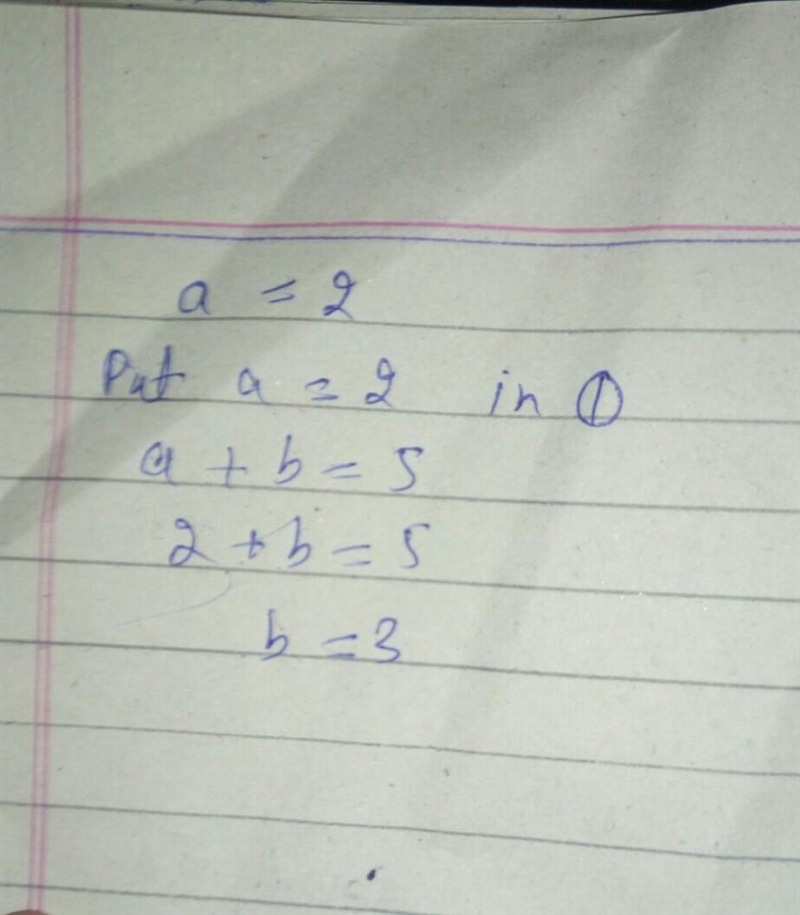 a = 2
Put a = 2 in ①
a + b = 5
2 + b = 5
b = 3